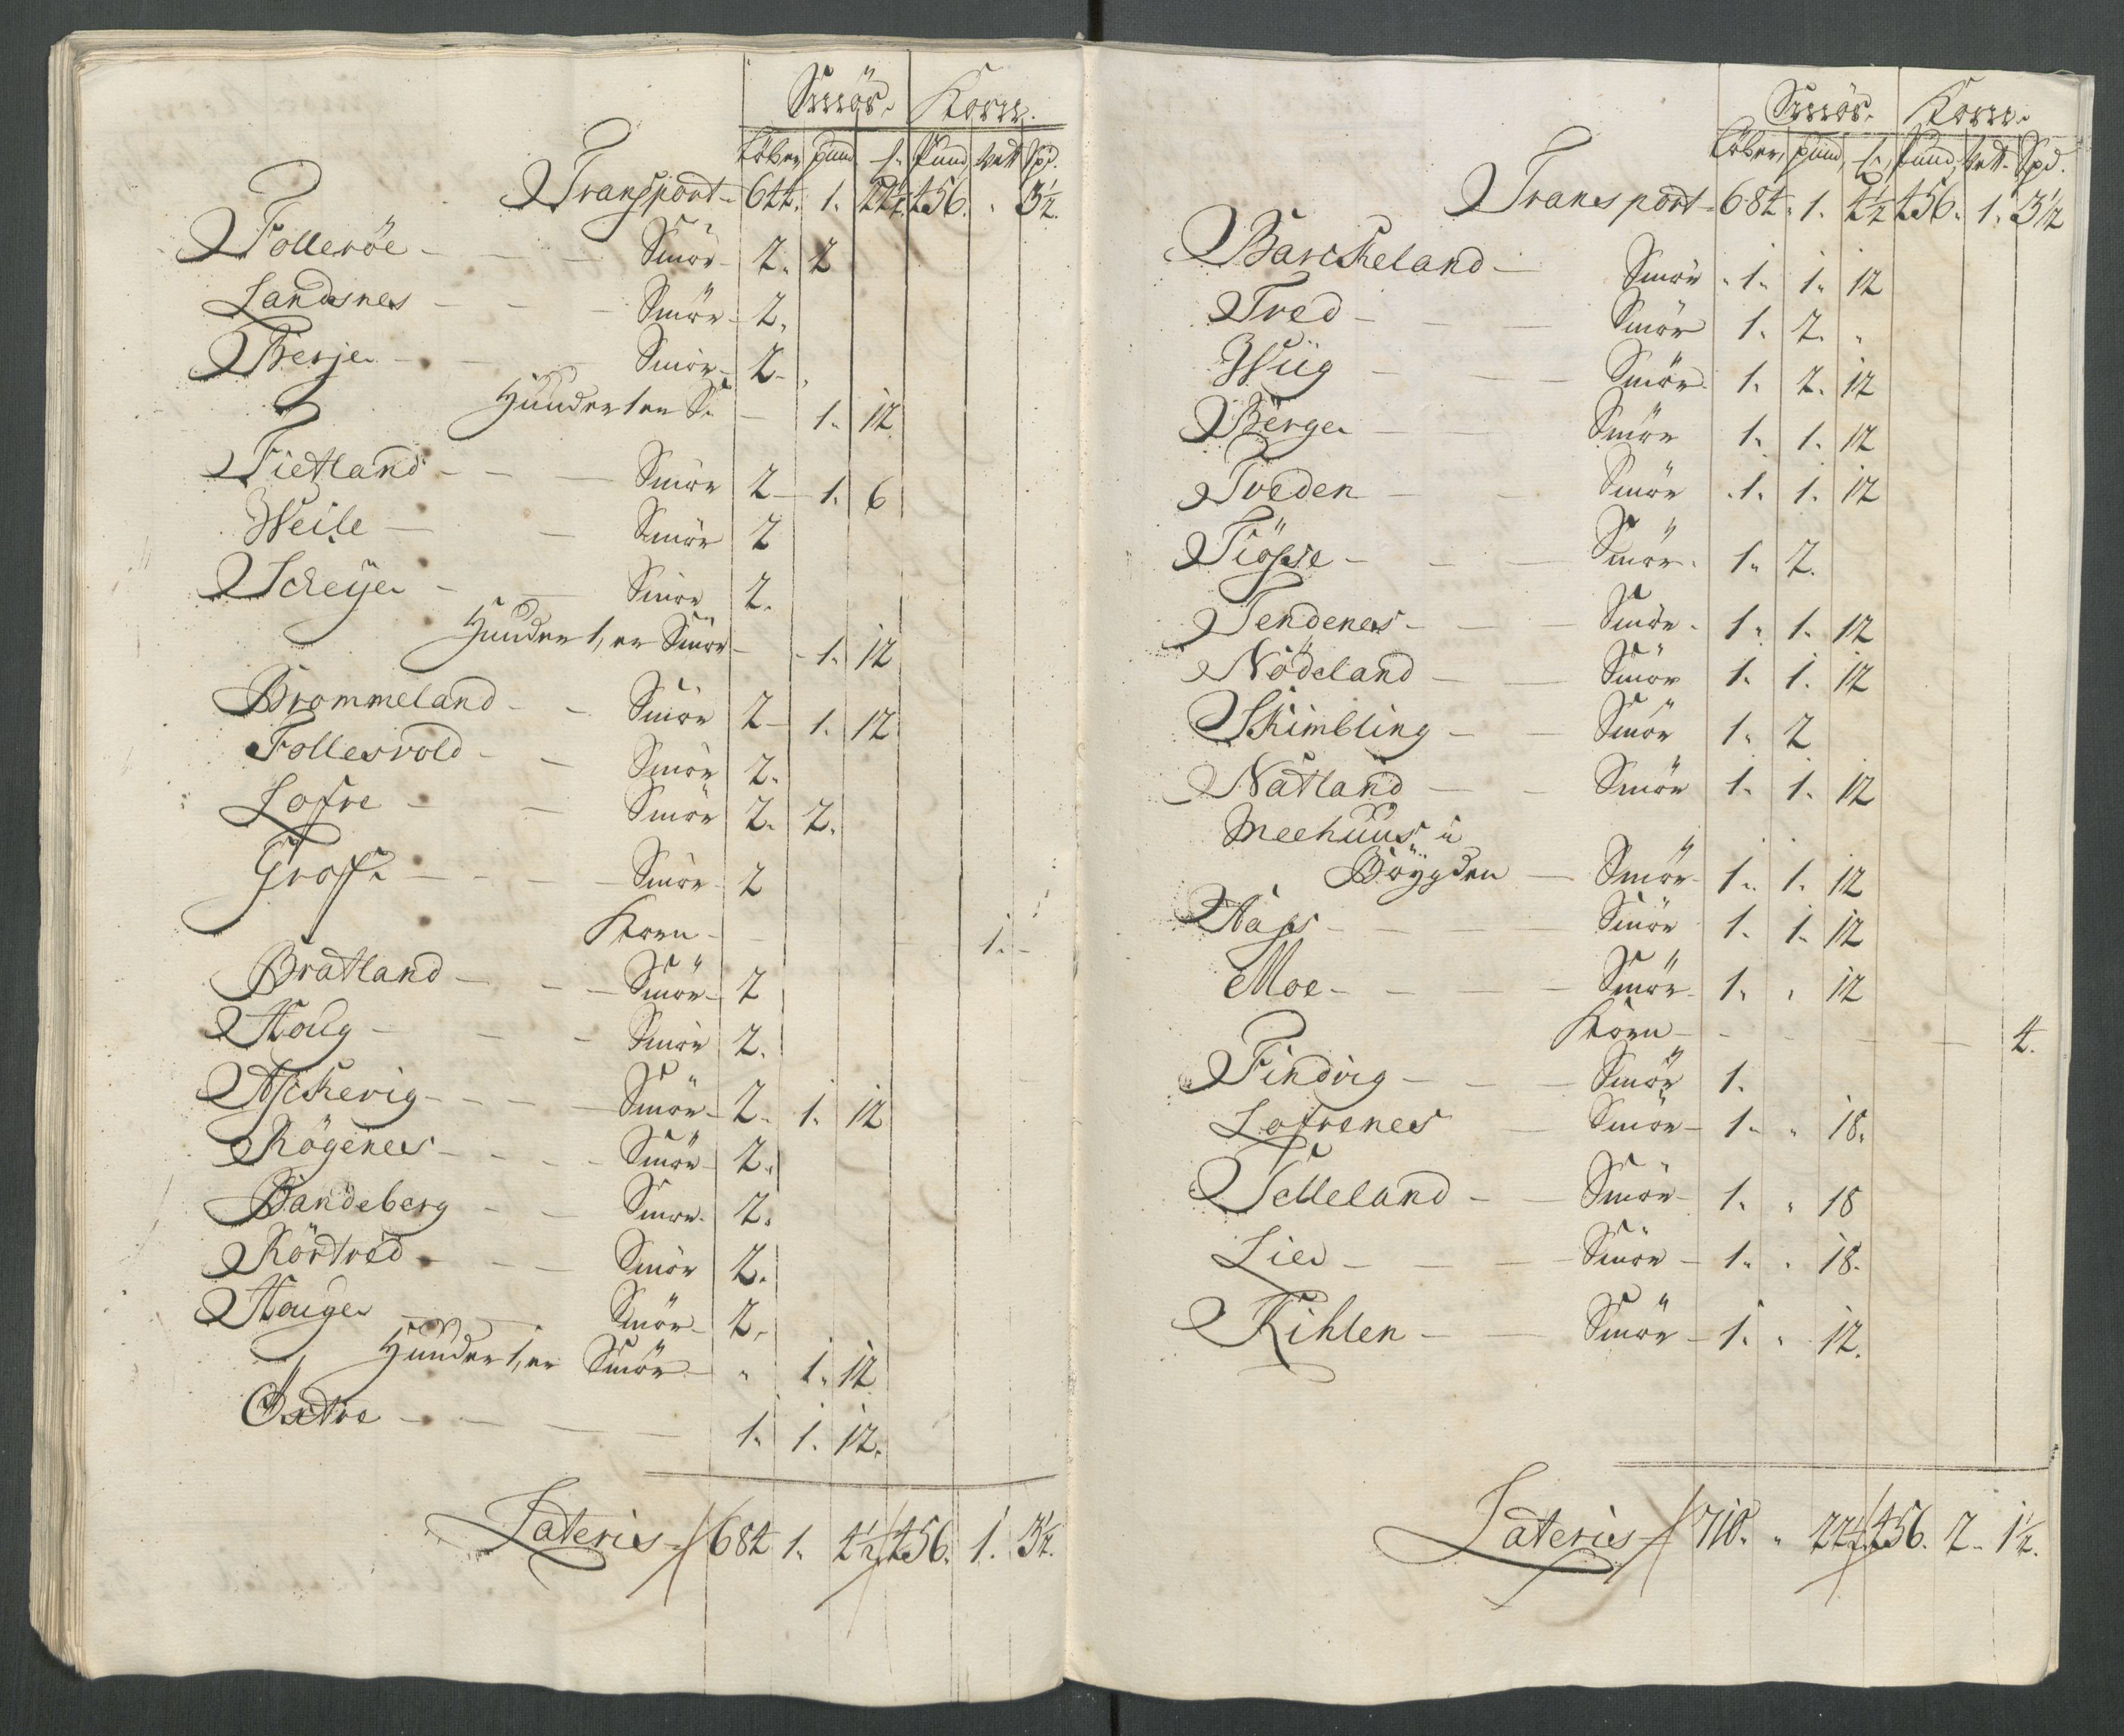 Smör. Korn.
Löber pund ℔. Pund, Vett Spd.
Transport- 644. 1. 22½. 456. " 3½.
Folleröe - - - Smör- 2. 2
Landsnes - - - Smör- 2.
Tverje - - - Smör- 2-.
Hunderten S. - 1. 12.
Tietland - - - Smör 2- 1. 6
Weile - - Smör 2
Scheye - - Smör 2.
Hunder1,en Smör- - 1. 12
Brommeland - - Smör 2- 1. 12
Follesvold - - Smör 2.
Lofre - - Smör 2. 2.
Groff. - - - - Smör- 2
Korn - - - 1. -
Bratland - - - Smör- 2
Houg - - - Smör 2.
Aschevig - - - - Smör- 2. 1. 12
Rögenes - - - - Smör- 2.
Bandeberg - - Smör- 2.
Körtved - - - Smör 2.
Houge - Smör- 2.
Hunder1,en Smör- " 1. 12
Oxtre - - - - 1. 1. 12.
Lateris 684 1. 4½ 456. 1. 3½.
Smör. Korn.
Löber, pund, ℔ Pund, Vett. Spd.
Transport- 684. 1. 4½ 456. 1. 3½
Barckeland - Smör . 1. 1. 12
Tved - - - Smör 1. 2. "
Wiig - - Smör. 1. 2. 12
Berge - - Smör 1. 1. 12
Tveden - - Smör . 1. 1. 12
Tiösse - - - Smör. 1. 2.
Tendenes - - - Smör. 1. 1. 12
Nödeland - - Smör 1. 1. 12
Skimbling - - Smör 1. 2
Natland - - Smör 1. 1. 12
Meehuus i
Böygden - Smör- 1. 1. 12
Haps - - - - Smör 1. 1. 12
Moe - - - - Smör 1. " 12
Korn - - - - - 4.
Findvig - - - Smör 1.
Lofrenes - Smör- 1. " 18.
Selleland - - Smör- 1. " 18
Lie - - - - Smör - 1. " 18.
Kihlen - - Smör- 1. " 12.
Lateris 710. " 22½. 456. 2.. 1½.